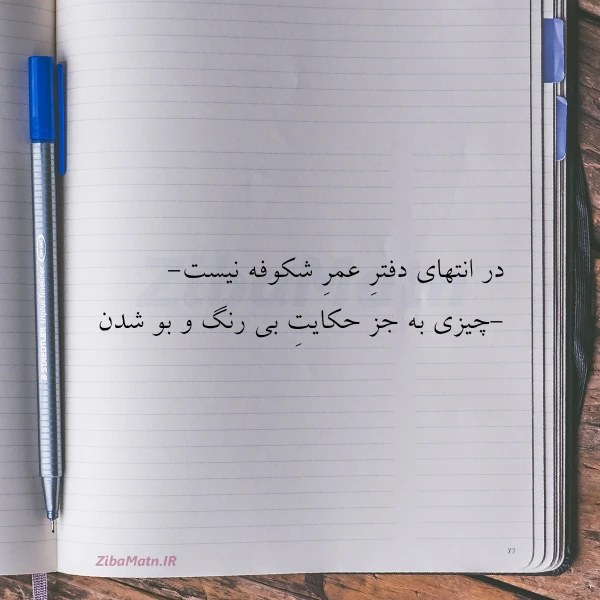 در انتهای دفترِ عمرِ شکوفه نیست-
-چیزی به جز حکایتِ بی رنگ و بو شدن
ZibaMatn.IR